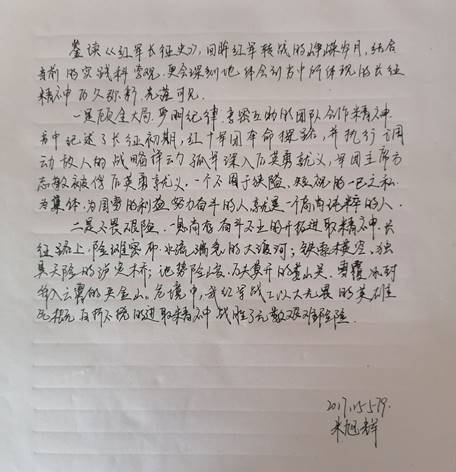 鉴读《红军长征史》，回眸红军转战的峥嵘岁月，结合
当前的实践科学观，更会深刻地体会到书中所体现的长征
精神历久弥新，光莲可见。
一是顾全大局、严明纪律、亲密互助的团队合作精神。
书中记述了长征初期，红十军团奉命探路，并执行调
动敌人的战略行动，孤军深入后英勇就义，军团主席方
志敏被俘后英勇就义。一个不囿于狭隘、短视的一己之私
为集体、为国家的利益努力奋斗的人，就是一个高尚纯粹的人
二是不畏艰险、崇高的奋斗不止的开拓进取精神。长
征路上，险难密布，水流湍急的大渡河；铁索横空、独
具天险的泸定桥；地势险峻、万夫莫开的娄山关，雪覆冰封
耸入云霄的夹金山。危境中，我红军战士以大无畏的英雄
气概百折不挠的进取精神战胜了无数艰难险阻